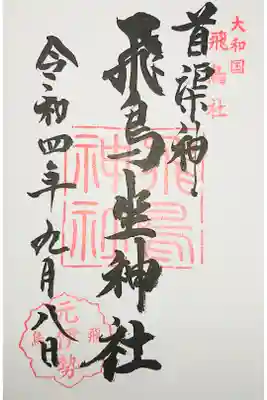 大和国
飛鳥社
首渠神
飛鳥坐神社
令和四年九月八日
飛鳥
神社
元伊勢
飛鳥